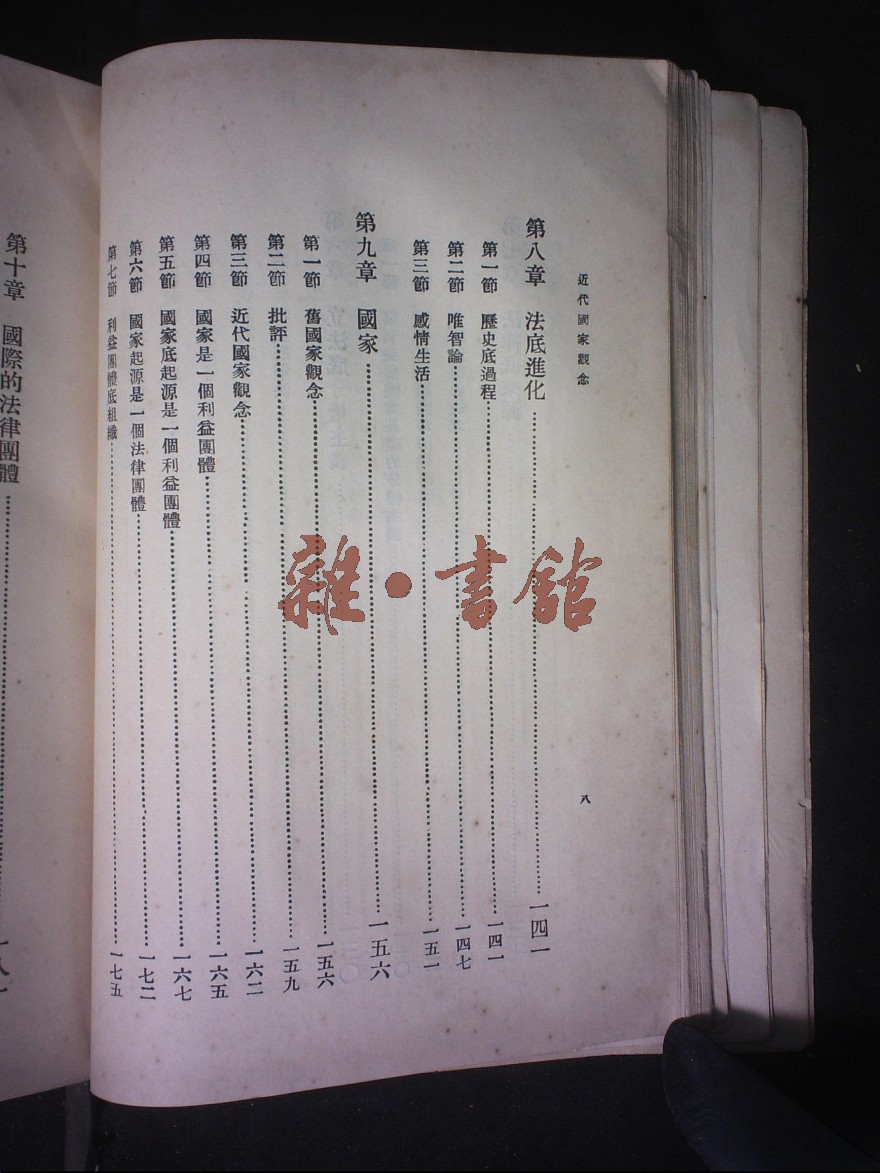 近代國家觀念
八
第八章 法底進化……一四一
第一節 歷史底過程……一四一
第二節 唯智論……一四七
第三節 感情生活……一五一
第九章 國家……一五六
第一節 舊國家觀念……一五六
第二節 批評……一五九
第三節 近代國家觀念……一六二
第四節 國家是一個利益團體……一六五
第五節 國家底起源是一個利益團體……一六七
第六節 國家起源是一個法律團體……一七二
第七節 利益團體底組織……一七五
第十章 國際的法律團體……一八一
雜·書館